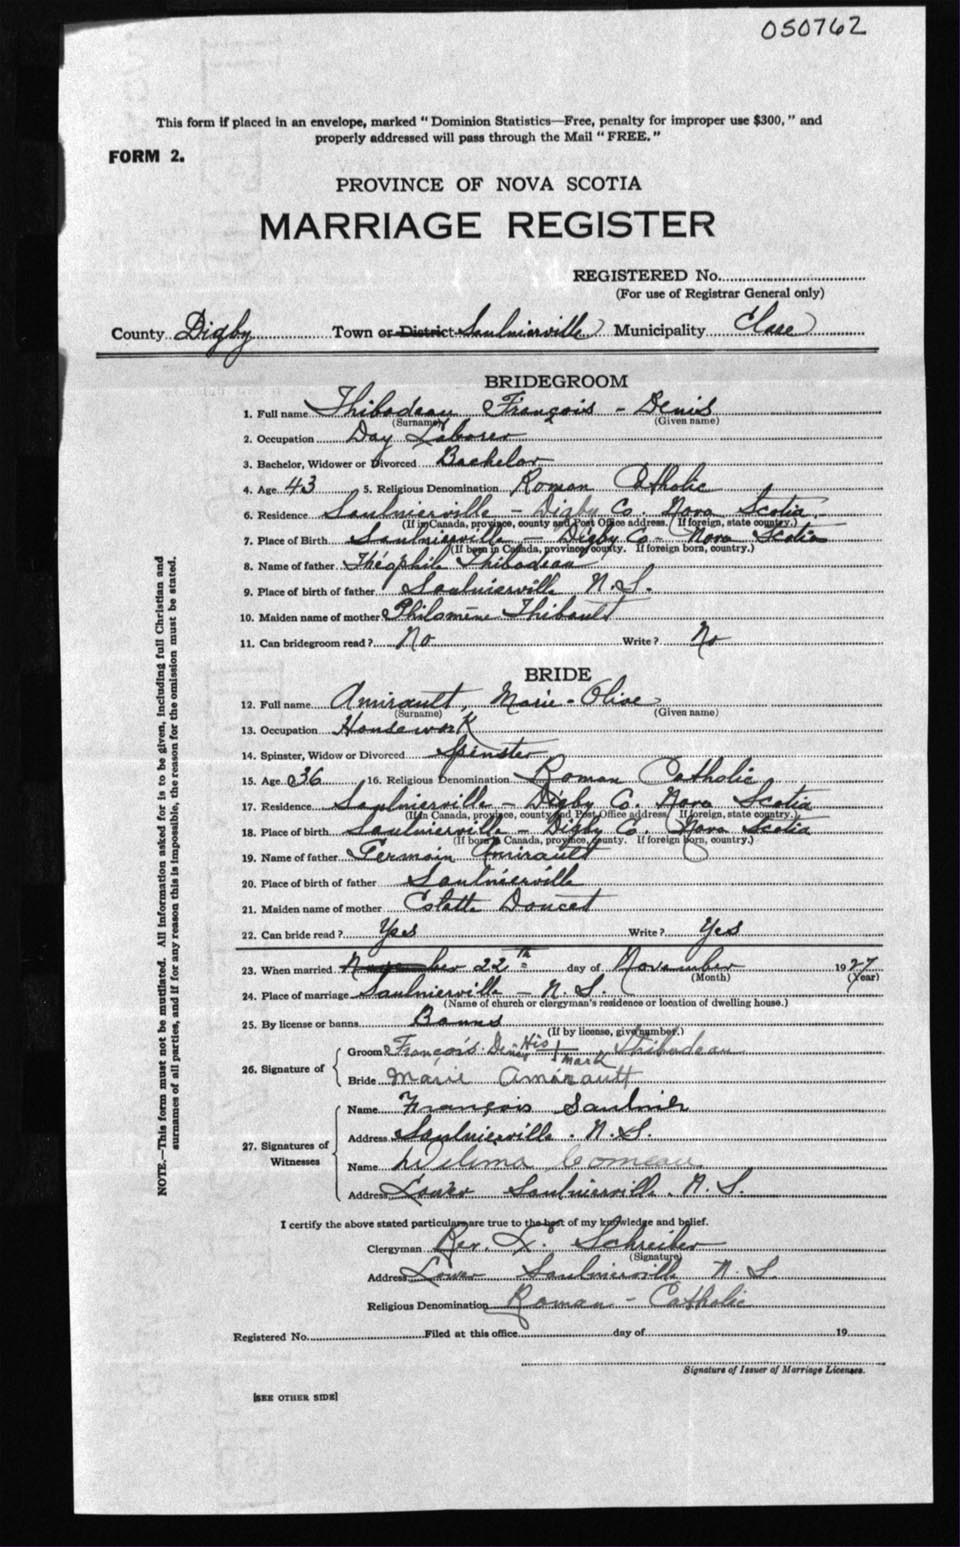 050762
This form if placed in an envelope, marked "Dominion Statistics—Free, penalty for improper use $300," and
properly addressed will pass through the Mail "FREE."
FORM 2.
PROVINCE OF NOVA SCOTIA
MARRIAGE REGISTER
REGISTERED No.
(For use of Registrar General only)
County Digby Town or District Saulnierville Municipality Clare
BRIDEGROOM
1. Full name Thibodeau François - Denis
(Surname) (Given name)
2. Occupation Day Laborer
3. Bachelor, Widower or Divorced Bachelor
4. Age 43 5. Religious Denomination Roman Catholic
6. Residence Saulnierville - Digby Co. Nova Scotia
(If in Canada, province, county and Post Office address. If foreign, state country.)
7. Place of Birth Saulnierville - Digby Co - Nova Scotia
(If born in Canada, province, county. If foreign born, country.)
8. Name of father Théophile Thibodeau
9. Place of birth of father Saulnierville N.S.
10. Maiden name of mother Philomène Thibault
11. Can bridegroom read? No Write? No
BRIDE
12. Full name Amirault, Marie-Olive
(Surname) (Given name)
13. Occupation Housework
14. Spinster, Widow or Divorced Spinster
15. Age 36 16. Religious Denomination Roman Catholic
17. Residence Saulnierville - Digby Co. Nova Scotia
(If in Canada, province, county and Post Office address. If foreign, state country.)
18. Place of birth Saulnierville - Digby Co. Nova Scotia
(If born in Canada, province, county. If foreign born, country.)
19. Name of father Germain Amirault
20. Place of birth of father Saulnierville
21. Maiden name of mother Colette Doucet
22. Can bride read? Yes Write? Yes
23. When married November 22th day of November 1927
(Month) (Year)
24. Place of marriage Saulnierville - N.S.
(Name of church or clergyman's residence or location of dwelling house.)
25. By license or banns Banns
(If by license, give number.)
26. Signature of
Groom François-Denis His + mark Thibodeau
Bride Marie Amirault
27. Signatures of Witnesses
Name François Saulnier
Address Saulnierville. N.S.
Name Comeau
Address Lower Saulnierville. N.S.
I certify the above stated particulars are true to the best of my knowledge and belief.
Clergyman Rev. L. Schreiber
(Signature)
Address Lower Saulnierville N.S.
Religious Denomination Roman-Catholic
Registered No. Filed at this office day of 19
Signature of Issuer of Marriage Licenses.
[SEE OTHER SIDE]
NOTE.—This form must not be mutilated. All information asked for is to be given, including full Christian and
surnames of all parties, and if for any reason this is impossible, the reason for the omission must be stated.